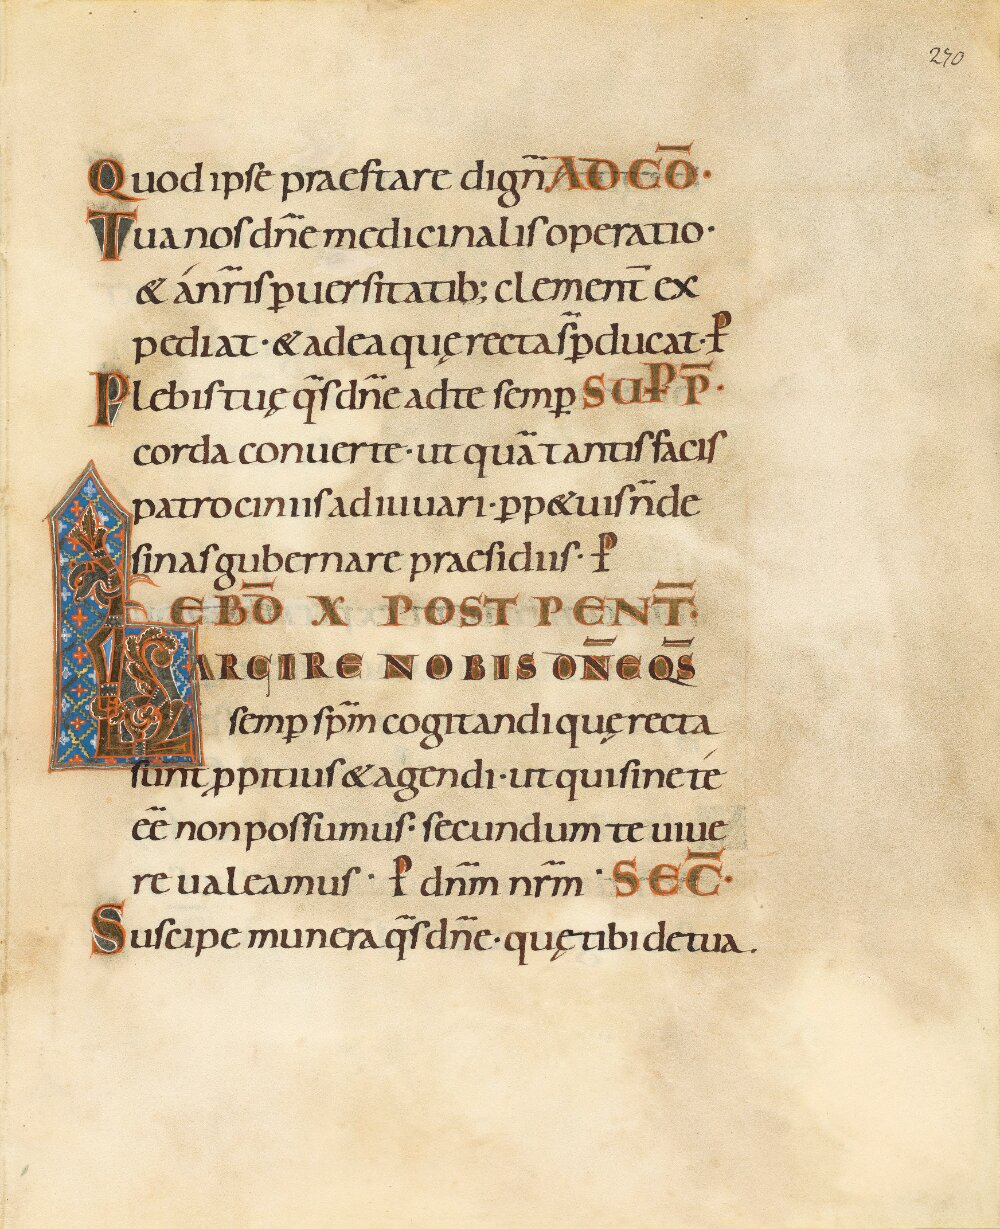 270
Quod ipse praestare dign̄ AD CŌ·
Tua nos dn̄e medicinalis operatio·
& á nr̄is ꝑuersitatib; clement̄ ex
pediat·&ad ea quę recta s̄ꝑ ducat·ꝑ
Plebis tuę q̄s dn̄e ad te semꝑ SUPP̄·
corda conuerte·ut quā tantis facis
patrociniis adiuuari·ꝑp&uis n̄ de
sinas gubernare praesidiis·ꝑ
EBD̄ X POST PENT̄:
LARGIRE NOBIS DN̄E QS̄
semꝑ sp̄m cogitandi quę recta
sunt ꝓpitius & agendi·ut qui sine té
ēē non possumus· secundum te uiue
re ualeamus · ꝑ dn̄m nr̄m · SEC̄·
Suscipe munera q̄s dn̄e·quę tibi de tua.